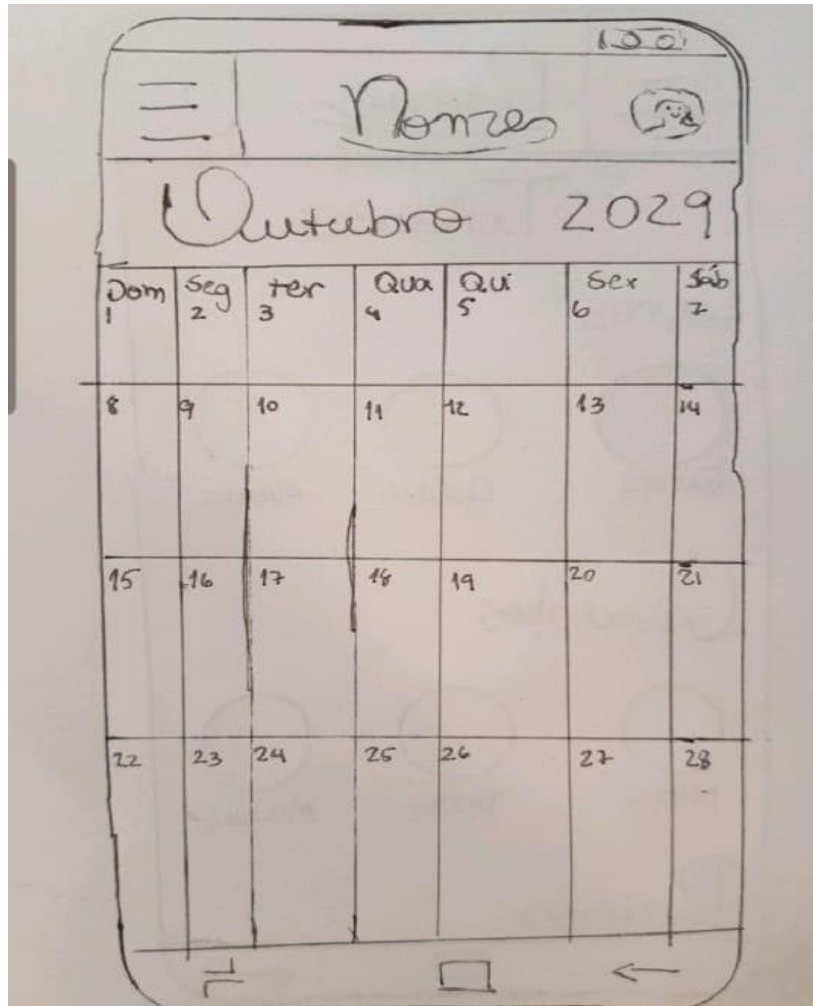 Nonzes
Outubro 2029
Dom Seg ter Qua Qui Sex Sáb
1 2 3 4 5 6 7
8 9 10 11 12 13 14
15 16 17 18 19 20 21
22 23 24 25 26 27 28